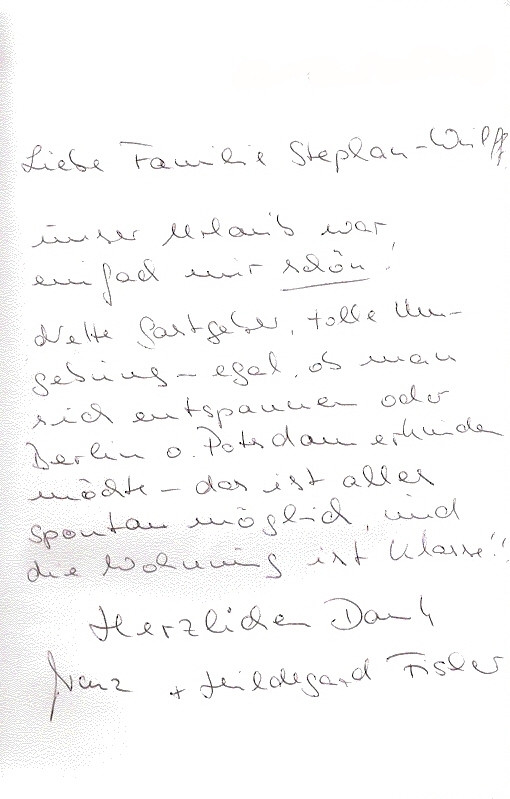 Liebe Familie Stephan-Wulff
unser Urlaub war
einfach nur schön!
Nette Gastgeber, tolle Um-
gebung – egal, ob man
sich entspannen oder
Berlin o. Potsdam erkunden
möchte – das ist alles
spontan möglich, und
die Wohnung ist Klasse!!
Herzlichen Dank
Franz + Hildegard Fisler